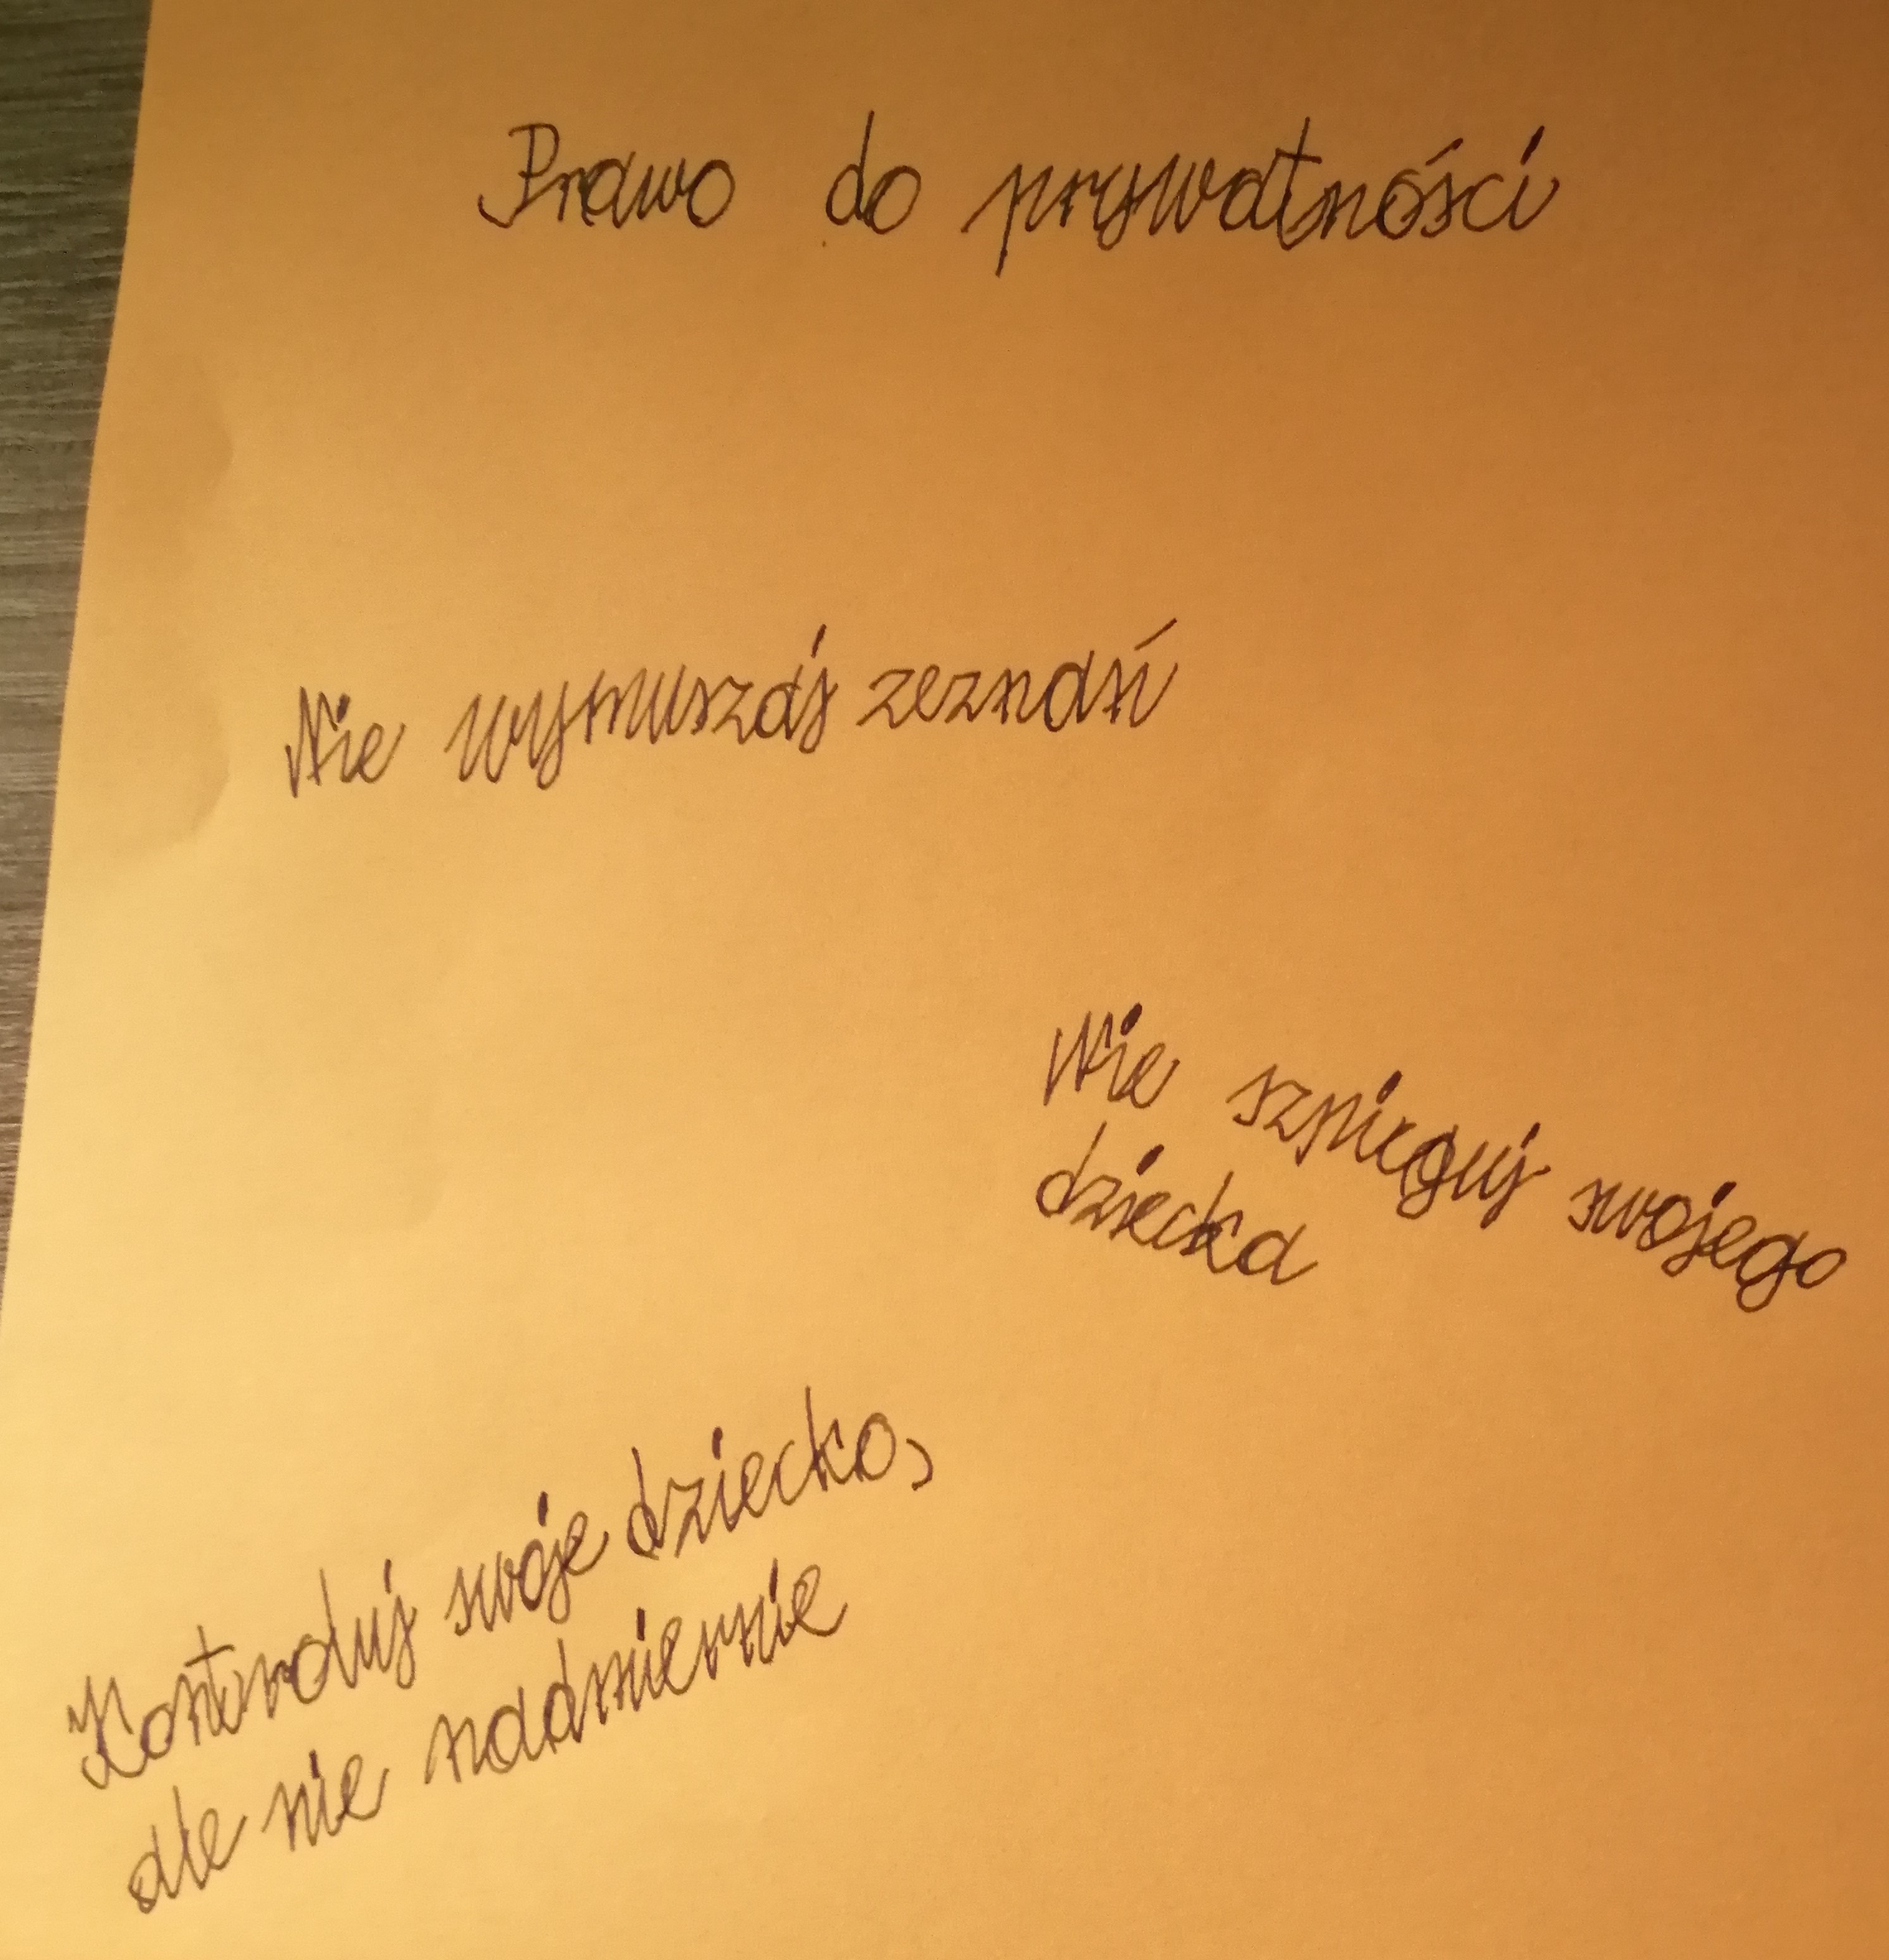 Prawo do prywatności
Nie wymuszaj zeznań
Nie szpieguj swojego
dziecka
Kontroluj swoje dziecko,
ale nie nadmiernie